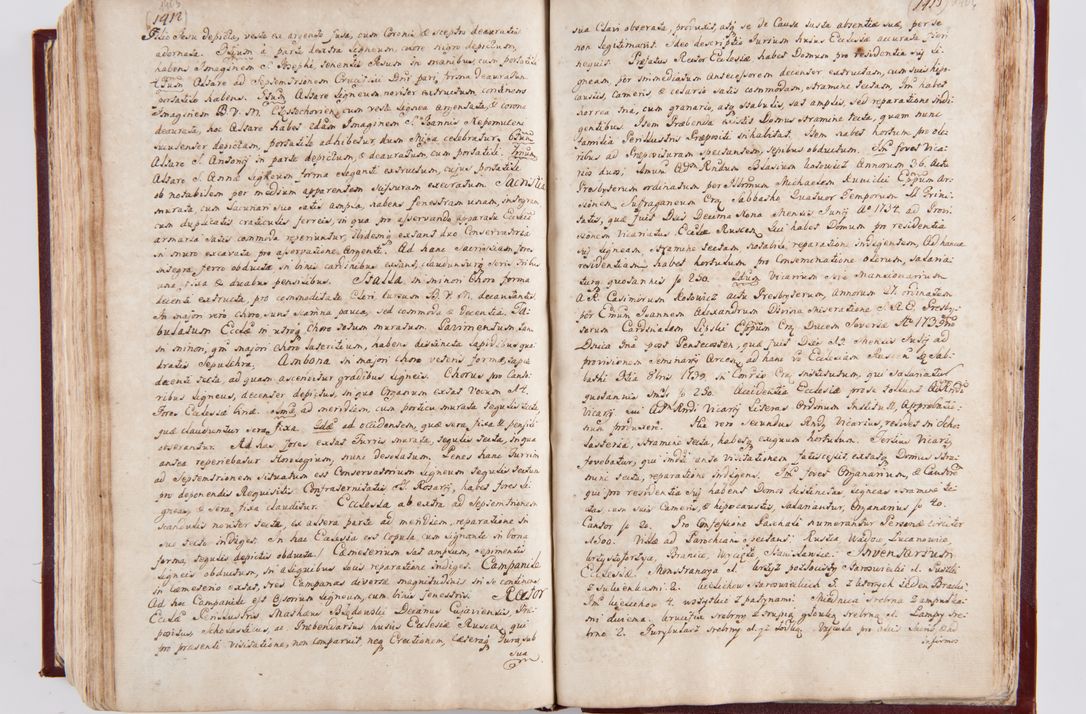 1412
Filio Jesu depicta, veste ex argento fusa, cum Coronis et sceptro deauratis
adornata. à parte dextra ligneum, colore nigro depictum,
habens Imaginem S. Josephi, tenentis Jesum in manibus cum portatili
Altare ad Septemtrionem Crucifixi Dni pari forma deauratum
portatile habens. Altare ligneum noviter extructum continens
Imaginem B. V. M. Częstochovien: cum veste lignea argentata, & corona
deaurata, hoc Altare habet etiam Imaginem S. Joannis Nepomuceni
depictam, portatile adhibetur, dum Missa celebratur.
Altare S. Antonij in parte depictum, & deauratum cum portatili.
Altare S. Anna ligneum forma eleganti extructum, cujus portatile
ob notabilem per medium apparentem scissuram execratum. Sacristia
murata, cum lacunari suo satis ampla, habens fenestram unam, integram
cum duplicatis craticulis ferreis, in qua pro asservando apparatu Ecclesiae
armaria satis commoda reperiuntur, ibidemq extant duo Conservatoria
in muro excavata pro asservatione Argenti. Ad hanc Sacristiam fores
integra ferro obductae in binis cardinibus extant, clauduntur seris tribus
una fixa & duabus pensilibus. Stalla in minori Choro forma
decenti extructa, pro commoditate Cleri cursum B. V. M. decantantis
In majori vero choro, sunt scamna pauca, sed commoda & decentia. Ta-
bulatum Eccla in utroq Choro totum muratum. Pavimentum tam
in minori, qm majori Choro lateritium, habens distincta lapidibus qua-
dratis Sepulchra, Ambona in majori choro vetus forma, tapia
decenti tecta, ad quam ascenditur gradibus ligneis. Chorus pro Canto-
ribus ligneus, decenter depictus, in quo Organum extat Vocum N. 4.
Fores Ecclesiae binae. ad meridiem, cum porticu murata tegulis tecta,
quae clauduntur sera fixa. ad occidentem, quae sera fixa & pensili
obserantur. Ad has fores extat Turris murata, tegulis tecta, in qua
antea reperiebatur Horologium, nunc desolatum. Penes hanc Turrim
ad Septemtrionem situatum est Conservatorium ligneum tegulis tectum
pro deponendis Requisitis Confraternitatis S. Rosarij, habet fores li-
gneas, & sera fixa clauditur. Ecclesia ab extra ad Septemtrionem
scandulis noviter tecta, ex altera parte ad meridiem, reparatione in
suo tecto indiget. In hac Ecclesia est copula cum signante in bona
forma, tegulis depictis obducta. Cemeterium sat amplum, asperimentis
ligneis obductum, in aliquibus locis reparatione indiget. Campanile
in Cemeterio extat, tres Campanas diversae magnitudinis in se continens
Ad hoc Campanile est Ostium ligneum, cum binis fenestris. Rector
Eccla Perillustris Mathaeus Decanus Cujaviensis, Prae-
positus, Scholasticus, ac Praebendarius hujus Ecclesiae Ruscen, qui
pro praesenti visitatione, non comparuit neq Erectionem, caeteraq Jura, sub
sua
1413
sua Clavi obserata, produxit, atq se de Causa justa absentiae suae, per se
non legitimavit. Ideo descriptio Jurium hujus Ecclesiae accurata, fieri
nequit. Praefatus Rector Ecclesiae habet Domum pro residentia sui li-
gneam, per immediatum Antecessorem decenter extructam, cum suis hipo-
caustis, Cameris, & cellario satis commodam, stramine tectam, In habet
horrea Ina, cum granario, atq stabulis, sat amplis, sed reparatione indi-
gentibus. Item Praebenda existit Domus stramine tecta, quam nunc
familia Perillustris Praepositi inhabitat. Item habet hortum pro ole-
ribus ad Praeposituram spectantem, sepibus obductum. In fovet Vica-
rios duos, Blasium Annorum 36. Actu
Presbyterum ordinatum per Illrmum Michaelem Kunicki Eppum Ar-
sionen, Suffraganeum Crac, Sabbatho Quatuor Temporum SS. Trini-
tatis, quae fuit Dies Decima Nona Mensis Junij Ao 1734. ad Provi-
sionem Vicariatus Eccla Ruscen. Hic habet Domum pro residentia
sui ligneam, stramine tectam notabili reparatione indigentem, Ad hanc
residentiam habet hortulum pro Consementatione olerum, salaria-
turq quotannis fo 250. Vicarium sive Mansionarium
A. R. Casimirum actu Presbyterum, Annorum 27. ordinatum
per Emum Joannem Alexandrum Divina Miseratione S. R. E. Presby-
terum Cardinalem Lipski Eppum Crac, Ducem Severiae Ao 1739
Dnica Ina post Pentecosten, quae fuit Dies 12 Mensis Julij ad
provisionem Seminarij Arcen, ad hanc vero Ecclesiam Ruscen. Sab-
bathi Dia 8bris 1739. in Crac institutum, qui salariatus
quotannis fo 250. Accidentia Ecclesiae prose tollunt
Vicarij. Vicarij Literas Ordinum Institut, & Approbatio-
num produxere. Hic vero secundus Rndy Vicarius, residet in Scho-
lasteria, stramine tecta, habetq exiguum hortulum. Tertius Vicarius
fovebatur, qui ante visitationem fatiscessit, extatq Domus stra-
mine tecta, reparatione indigens. fovet Organarium, & Cantorem
qui pro residentia sui habent Domos distinctas ligneas stramine te-
ctas, cum suis Cameris, & hipocaustis, salariantur, Organarius fo 40.
Cantor fo 20. Pro Confessione Paschali numerantur Personae circiter
1500. Villae ad Parochiam spectant: Ruscia, Wadow, Lucanowice,
Branice, Wyciąże, Stanislavice. Inventarium
Ecclesiae. Monstrancya N. 1. Krzyż pozłocisty Puszki
z sukienkami 2. kielichow 3. z ktorych jeden Bracki
Im kielichow 4. wszystkie z patynami. Miednica srebrna z ampułka-
mi dwiema. Krucyfix srebrny z srebrny N. 1. Lampy sre-
brne 2. Turybularz srebrny z łodką
infirmos